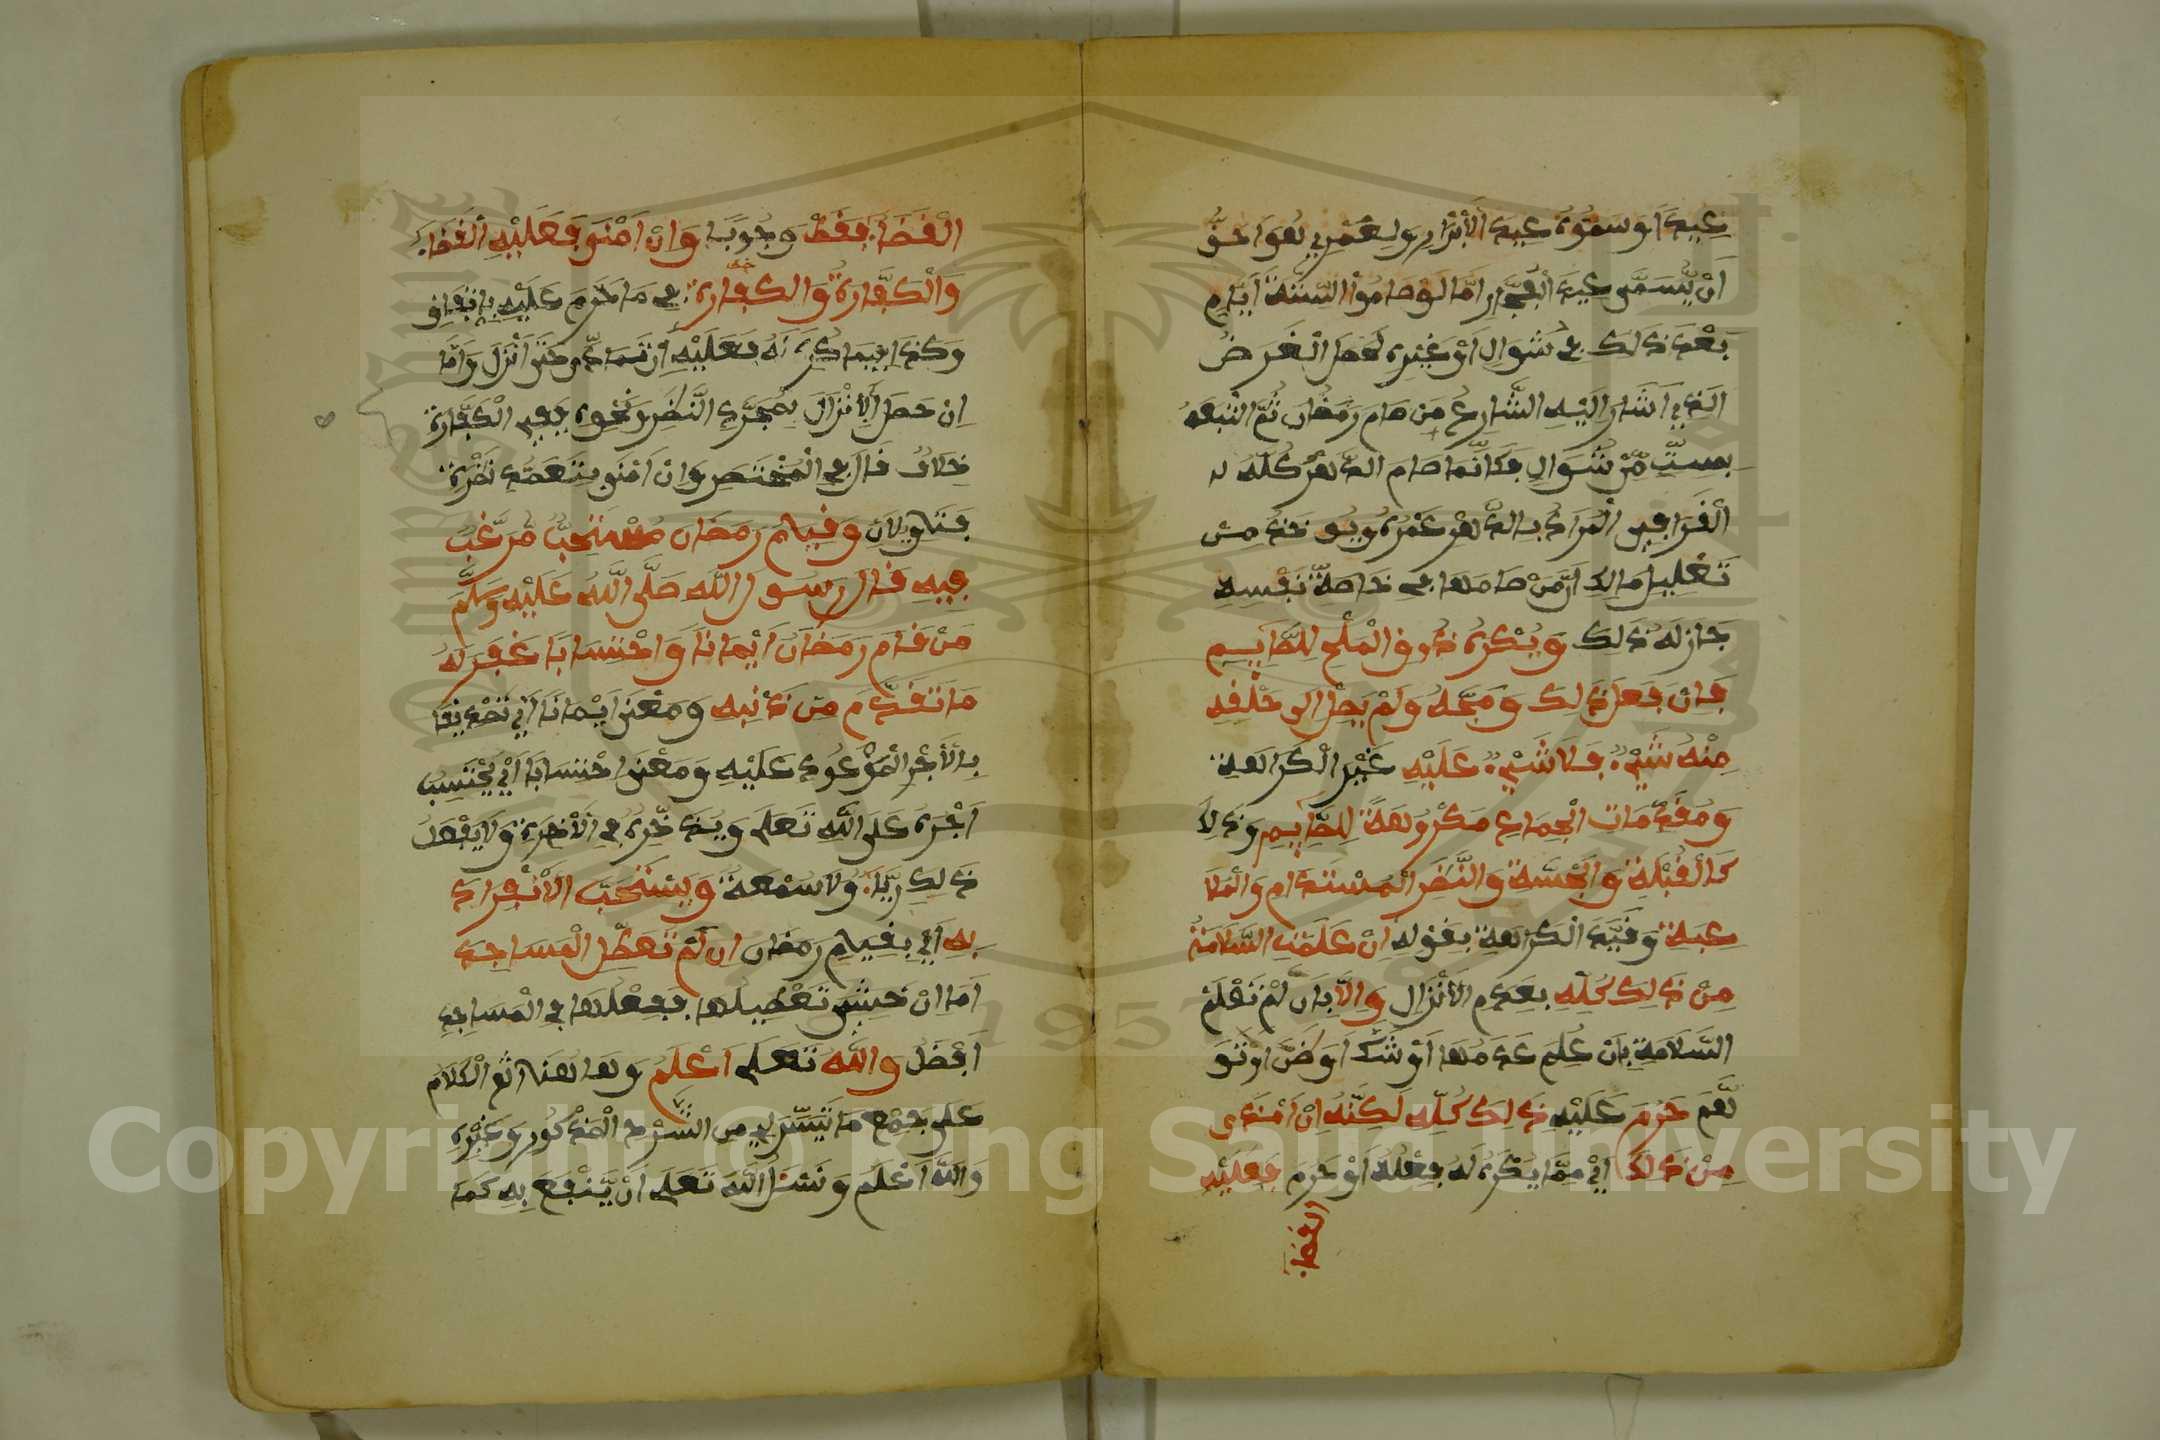 عيدا وسموه عيد الأبرار ولعمري لهو احق
أن يسمى عيد الفجار اما لو صاموا الستة أيام
بعد ذلك في شوال أو غيره لحصل الغرض
الذي اشار اليه الشارع من صام رمضان ثم اتبعه
بست من شوال فكأنما صام الدهر كله
القرافي المراد بالدهر عمره ويوخذ من
تعليل مالك ان من صامها في خاصة نفسه
جاز له ذلك ويكره ذوق الملح للصايم
فان فعل ذلك ومجه ولم يصل الى حلقه
منه شيء فلا شيء عليه غير الكراهة
ومقدمات الجماع مكروهة للصايم وذلك
كالقبلة والجسة والنظر المستدام والملا
عبة وقيد الكراهة بقوله ان علمت السلامة
من ذلك كله بعدم الانزال والا بان لم تعلم
السلامة بان علم عدمها أو شك او ظن او تو
هم حرم عليه ذلك كله لكنه ان امذى
من ذلك اي مما يكره له فعله أو حرم فعليه
القضاء
القضاء فقط وجوبا وان امنى فعليه القضاء
والكفارة والكفارة في ما حرم عليه باتفاق
وكذا فيما كره له فعليه ان تمادى حتى أنزل واما
ان حصل الانزال بمجرد النظر ونحوه ففي الكفارة
خلاف قال في المختصر وان امنى بتعمد نظرة
فتاويلان وقيام رمضان مستحب مرغب
فيه قال رسول الله صلى الله عليه وسلم
من قام رمضان ايمانا واحتسابا غفر له
ما تقدم من ذنبه ومعنى ايمانا اي تصديقا
بالأجر الموعود عليه ومعنى احتسابا اي يحتسب
أجره على الله تعلى ويدخره في الآخرة ولا يفعل
ذلك رياء ولا سمعة ويستحب الانفراد
به أي بقيام رمضان ان لم تعطل المساجد
اما ان خشي تعطيلها ففعلها في المساجد
أفضل والله تعلى أعلم وها هنا انتهى الكلام
على جمع ما تيسر لي من الشرح المذكور وغيره
والله أعلم ونسئل الله تعلى أن ينفع به كما
Copyright © King Saud University
1957